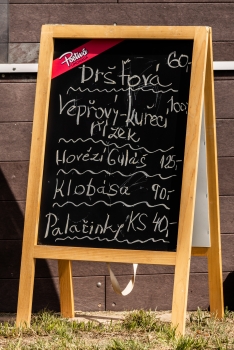 Poctivá
60,-
Dršťová
Vepřový-kuřecí 100,-
řízek
Hovězí Guláš 125,-
Klobása 90,-
Palačinky KS 40,-